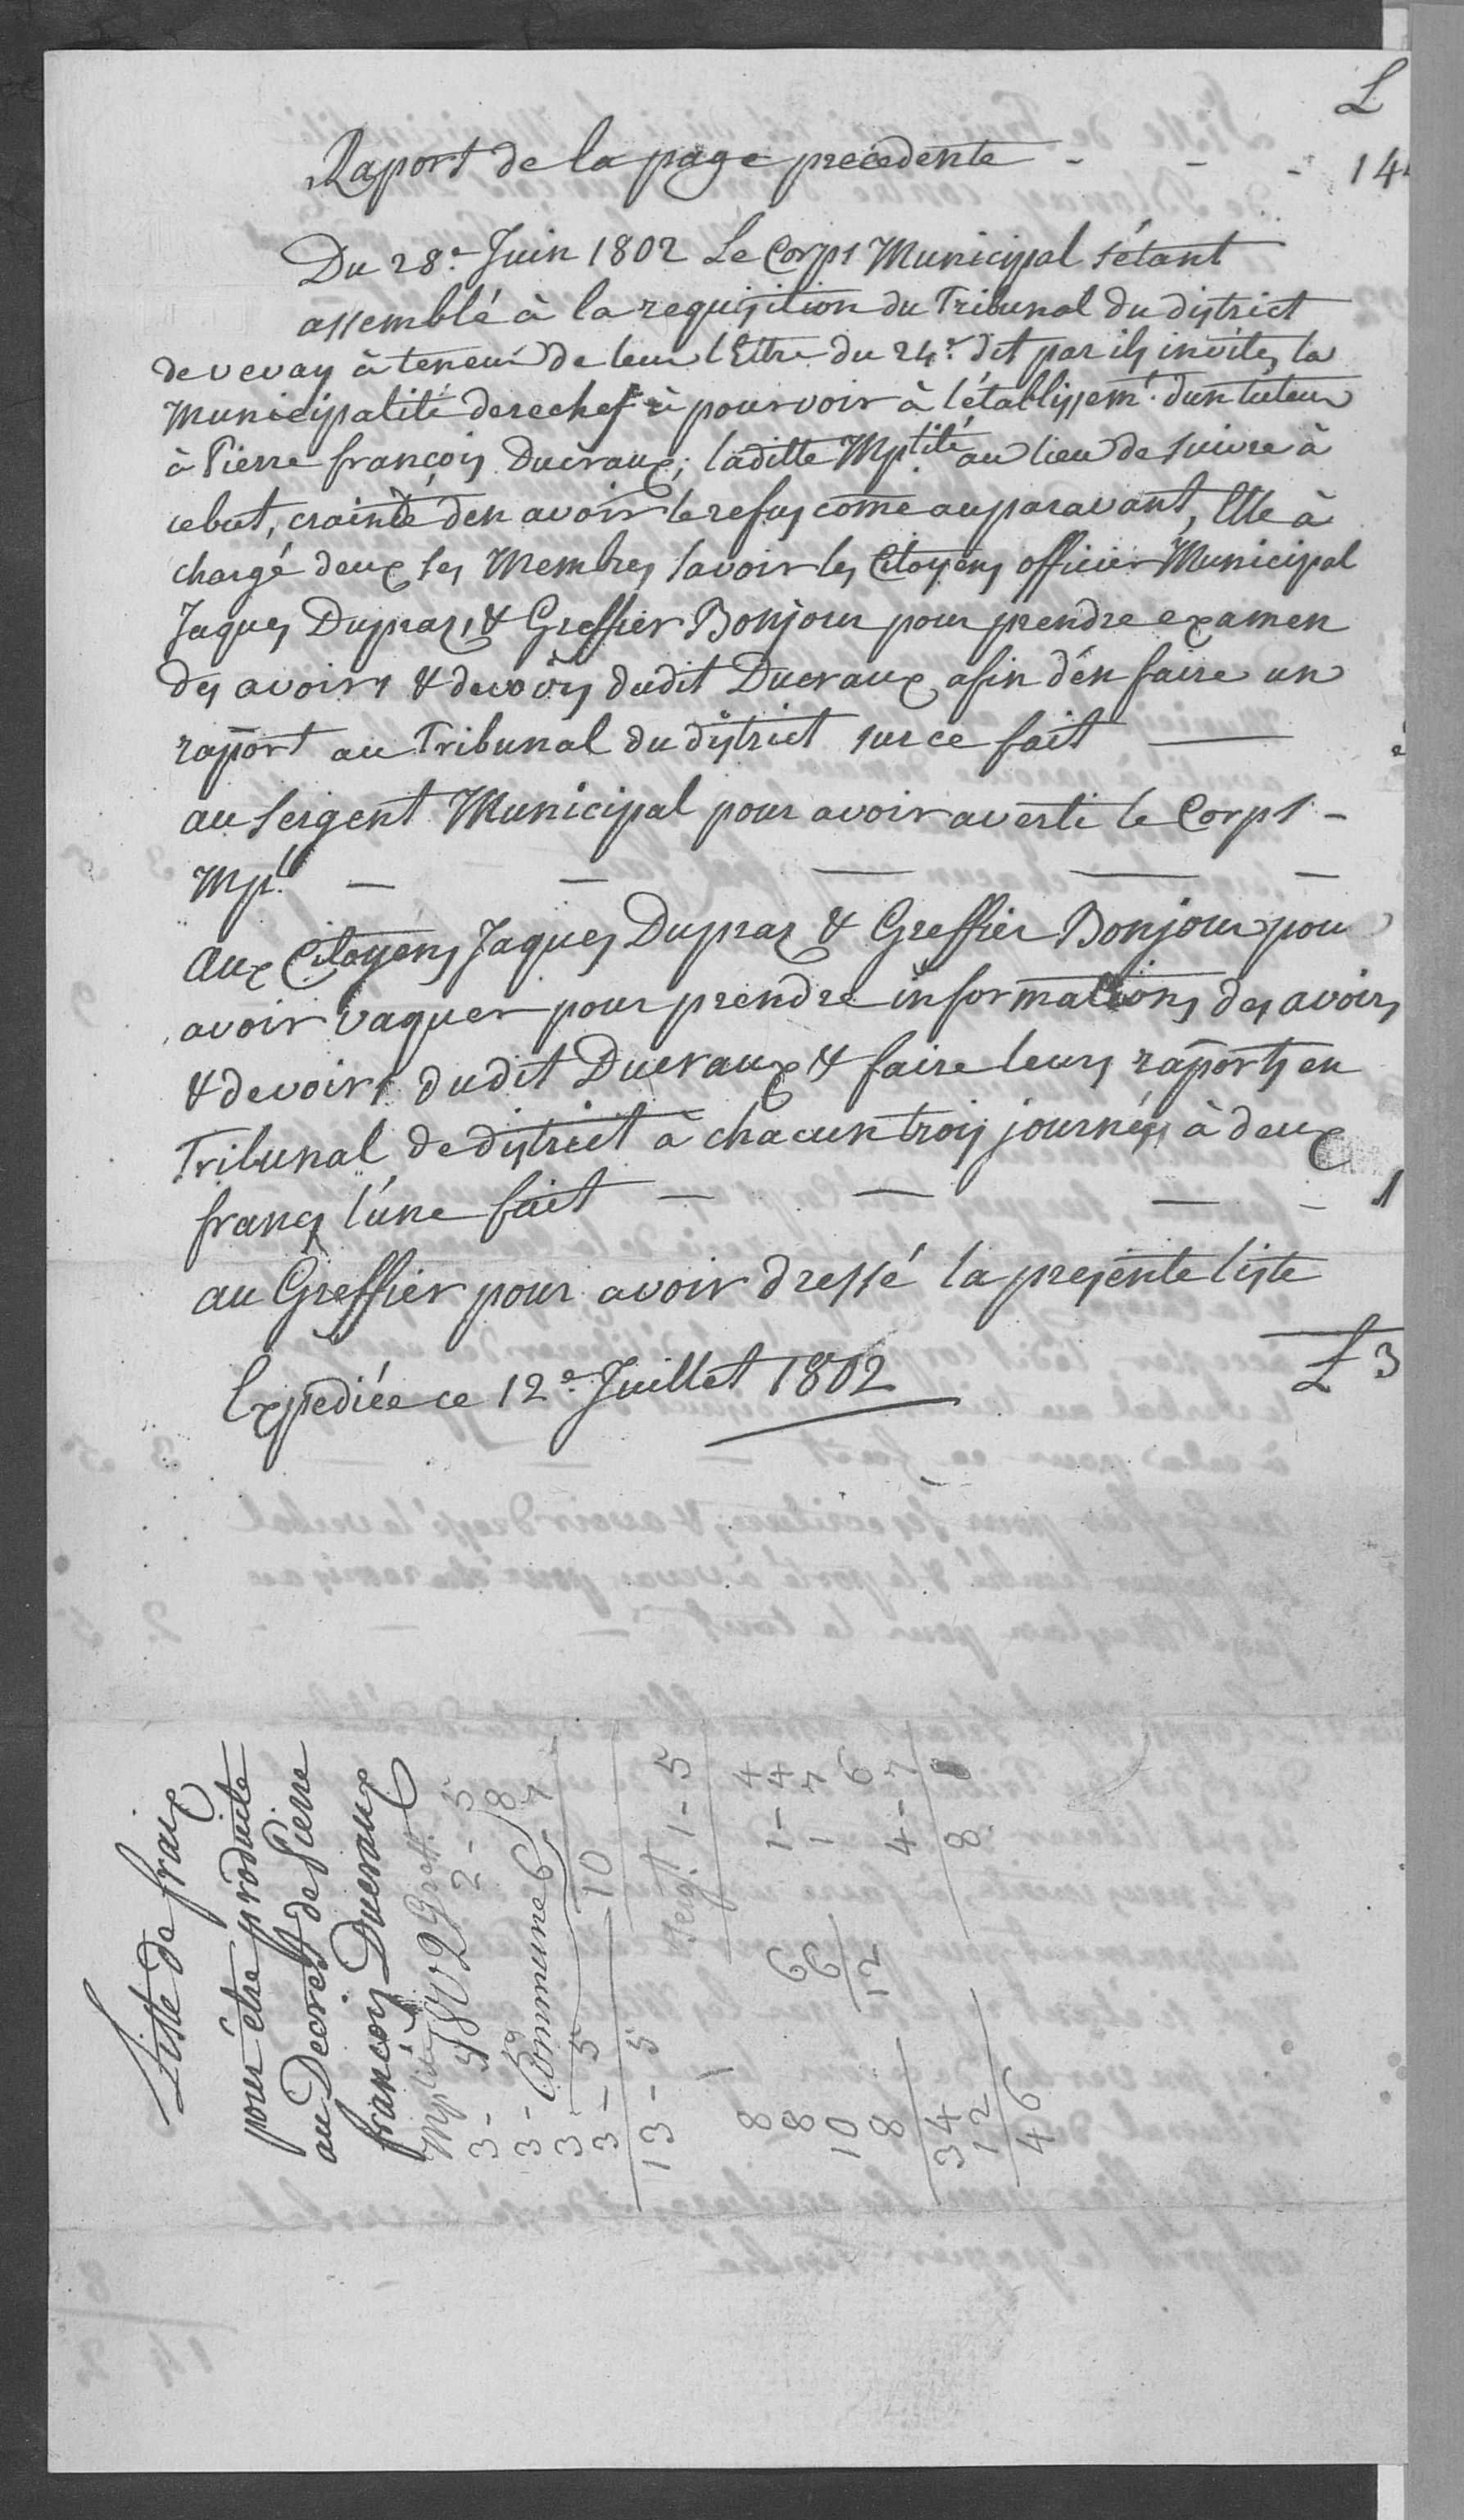 L
Raport de la page precedente - - - 14
Du 28.e Juin 1802 Le Corps Municipal s'étant
assemblé à la requisition du Tribunal du district
de vevay à teneur de leur lettre du 24.e dit par ils invite, la
Municipalité derechef à pourvoir à l'établissem.t d'un tuteur
à Pierre françois Ducraux; laditte Mp.lité au lieu de suivre à
ce but, crainte d'en avoir le refus come auparavant, Elle à
chargé deux ses Membres savoir les Citoyens officier Municipal
Jaques Dupraz, & Greffier Bonjour pour prendre examen
des avoirs & devoirs dudit Ducraux afin d'en faire un
raport au Tribunal du district sur ce fait —
au sergent Municipal pour avoir averti le Corps -
Mp.l — — — — —
aux Citoyens Jaques Dupraz & Greffier Bonjour pour
avoir vaquer pour prendre informations des avoirs
& devoirs dudit Ducraux & faire leurs raports en
Tribunal de district à chacun trois journées à deux
francs l'une fait — — — - 1
au Greffier pour avoir dressé la presente liste
L 3
Expediée ce 12.e Juillet 1802
Liste de fraix
pour être produite
au Decret de Pierre
françois Ducraux
Mplité 1802 Greff.
3 - 5 2 - 5
3 - Commune 6 8
3 - 5 7
3 - 10
13 - 5
Serg.t 1 - 5
1 - 4
4
1 7
6
4 - 7
8
6
6
12
8
8
10
8
34
12
46